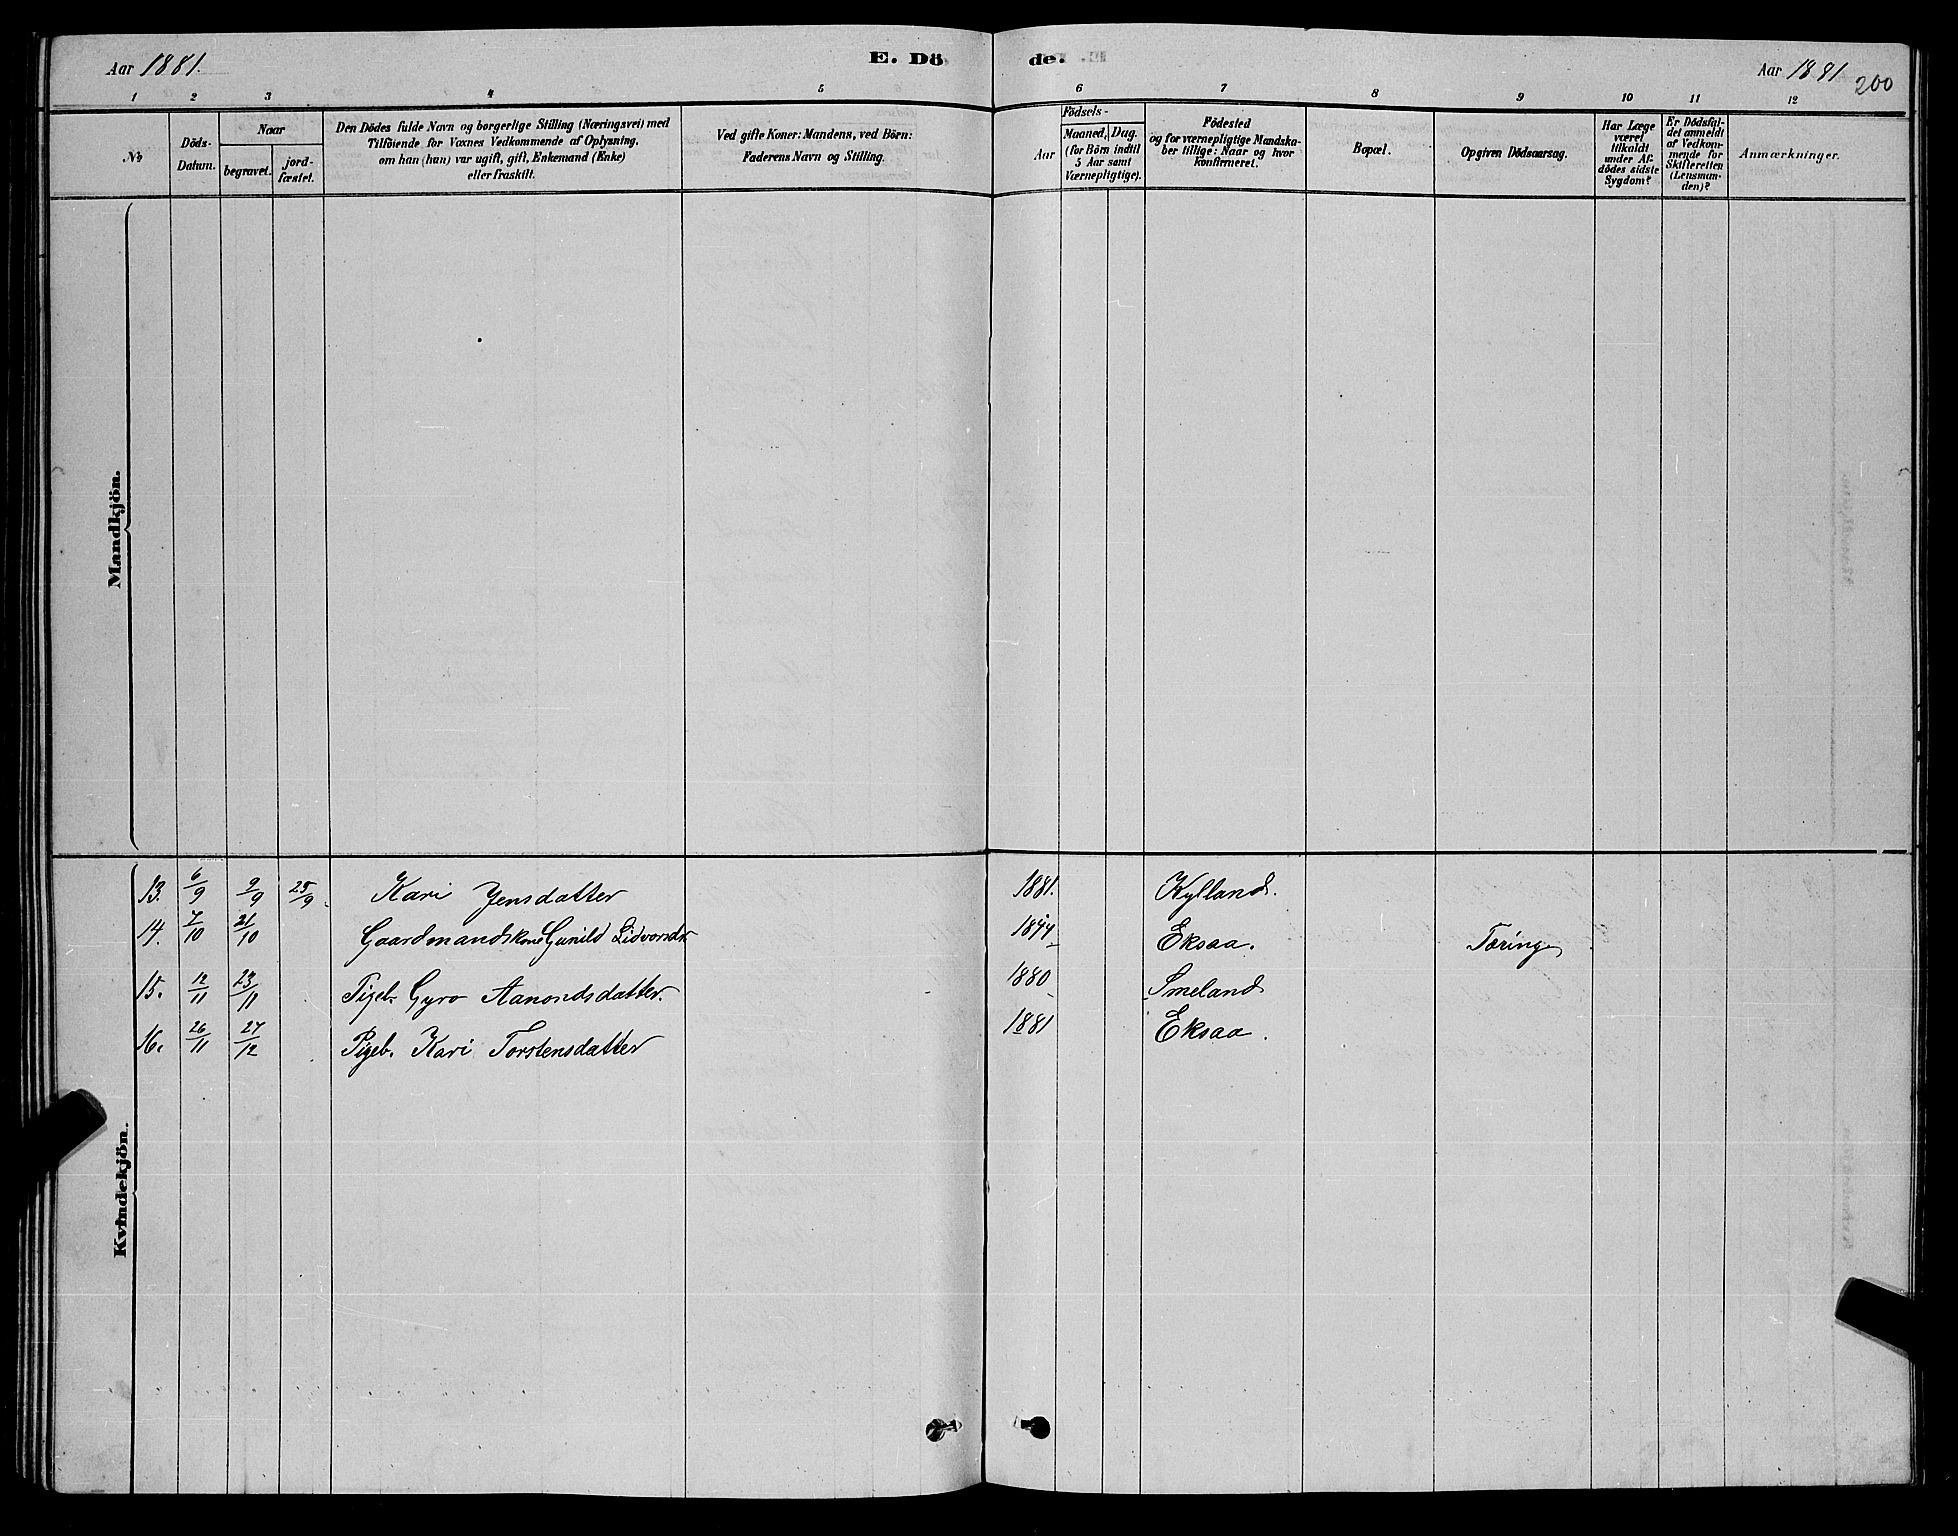 Aar 1881.
E. Dö de.
Aar 1881
200
1 2 3 4 5 6 7 8 9 10 11 12
№
Döds-
Datum.
Naar
begravet.
jord-
fæstet.
Den Dödes fulde Navn og borgerlige Stilling (Næringsvei) med
Tilföiende for Voxnes Vedkommende af Oplysning,
om han (hun) var ugift, gift, Enkemand (Enke)
eller fraskilt.
Ved gifte Koner: Mandens, ved Börn:
Faderens Navn og Stilling.
Födsels-
Aar
Maaned, Dag.
(for Börn indtil
5 Aar samt
Værnepligtige).
Födested
og for værnepligtige Mandska-
ber tillige: Naar og hvor
konfirmeret.
Bopæl.
Opgiven Dödsaarsag.
Har Læge
været
tilkaldt
under Af-
dödes sidste
Sygdom?
Er Dödsfal-
det anmeldt
af Vedkom-
mende for
Skifteretten
(Lensman-
den)?
Anmærkninger.
Mandkjön.
Kvindekjön.
13. 6/9 9/9 25/9. Kari Jensdatter 1881. Kylland.
14. 7/10 21/10 Gaardmandskone Gunild Lidvorsdr. 1844 Eksaa. Tæring
15. 12/11 23/11 Pigeb. Gyro Aanondsdatter. 1880 Smeland
16. 26/11 27/12 Pigeb. Kari Torstensdatter 1881 Eksaa.